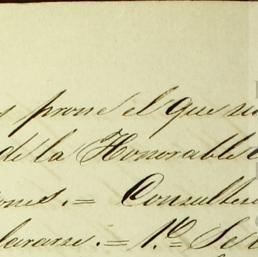 s prone el que su
de la Honorable
ones. = Consulte
lararse. = 1.º Se